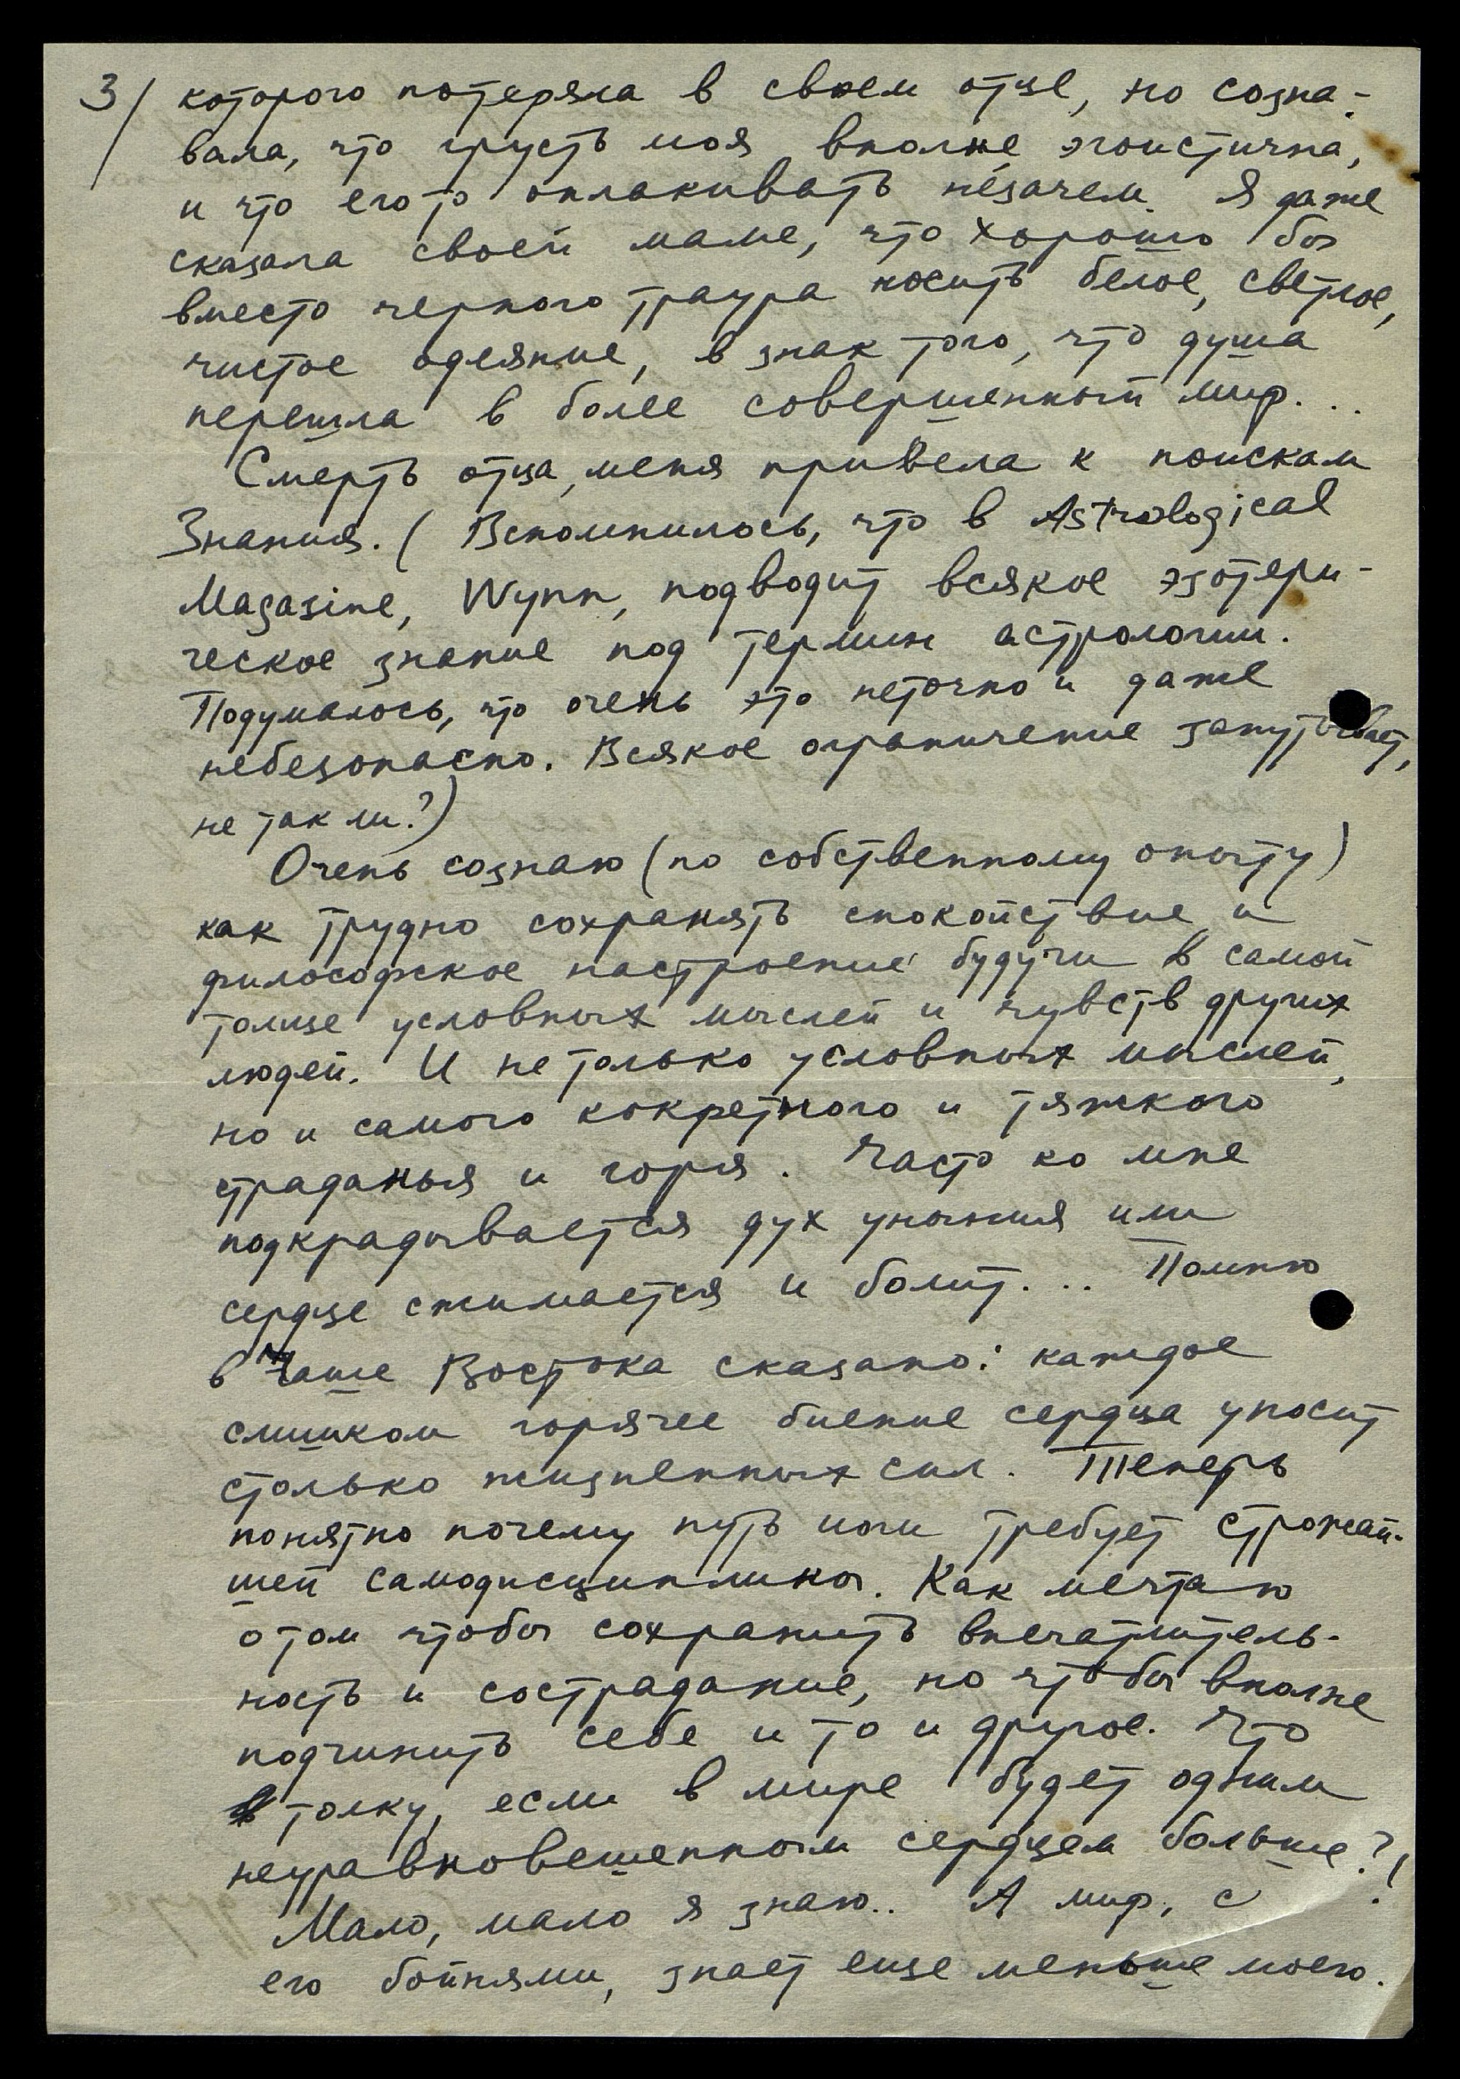 3/ которого потеряла в своем отце, но созна-
вала, что грусть моя вполне эгоистична,
и что его то оплакивать незачем. Я даже
сказала своей маме, что хорошо бы
вместо черного траура носить белое, светлое,
чистое одеяние, в знак того, что душа
перешла в более совершенный мир...
Смерть отца, меня привела к поискам
Знания. (Вспомнилось, что в Astrological
Magasine, Wynn, подводит всякое эзотери-
ческое знание под термин астрологии.
Подумалось, что очень это неточно и даже
небезопасно. Всякое ограничение запутывает,
не так ли?)
Очень сознаю (по собственному опыту)
как трудно сохранять спокойствие и
философское настроение будучи в самой
толще условных мыслей и чувств других
людей. И не только условных мыслей,
но и самого кокретного и тяжкого
страданья и горя. Часто ко мне
подкрадывается дух уныния или
сердце сжимается и болит... Помню
в Чаше Востока сказано: каждое
слишком горячее биение сердца уносит
столько жизненных сил. Теперь
понятно почему путь иоги требует строжай-
шей самодисциплины. Как мечтаю
о том чтобы сохранить впечатлитель-
ность и сострадание, но чтобы вполне
подчинить себе и то и другое. Что
толку, если в мире будет одним
неуравновешенным сердцем больше?!
Мало, мало я знаю.. А мир, с
его бойнями, знает еще меньше моего.